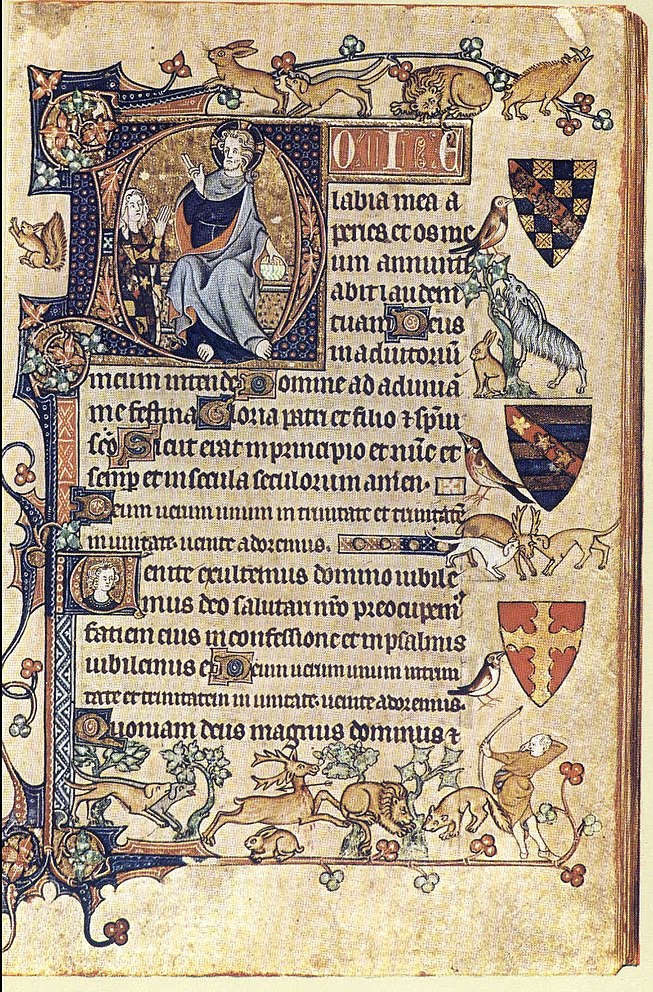 D
OIE
labia mea a
peries et os me
um annunti
abit laudem
tuam Deus
in adiutoriū
meum intende Domine ad adiuuā
me festina Gloria patri et filio ⁊ spūi
scō Sicut erat in principio et nūc et
semp et in secula seculorum amen.
Deum uerum unum in trinitate et trinitatē
in unitate. uenite adoremus.
Uenite exultemus domino iubile
mus deo salutari nr̄o preocupem
faciem eius in confessione et in psalmis
iubilemus ei Deum uerum unum in trini
tate et trinitatem in unitate. uenite adoremus.
Quoniam deus magnus dominus ⁊